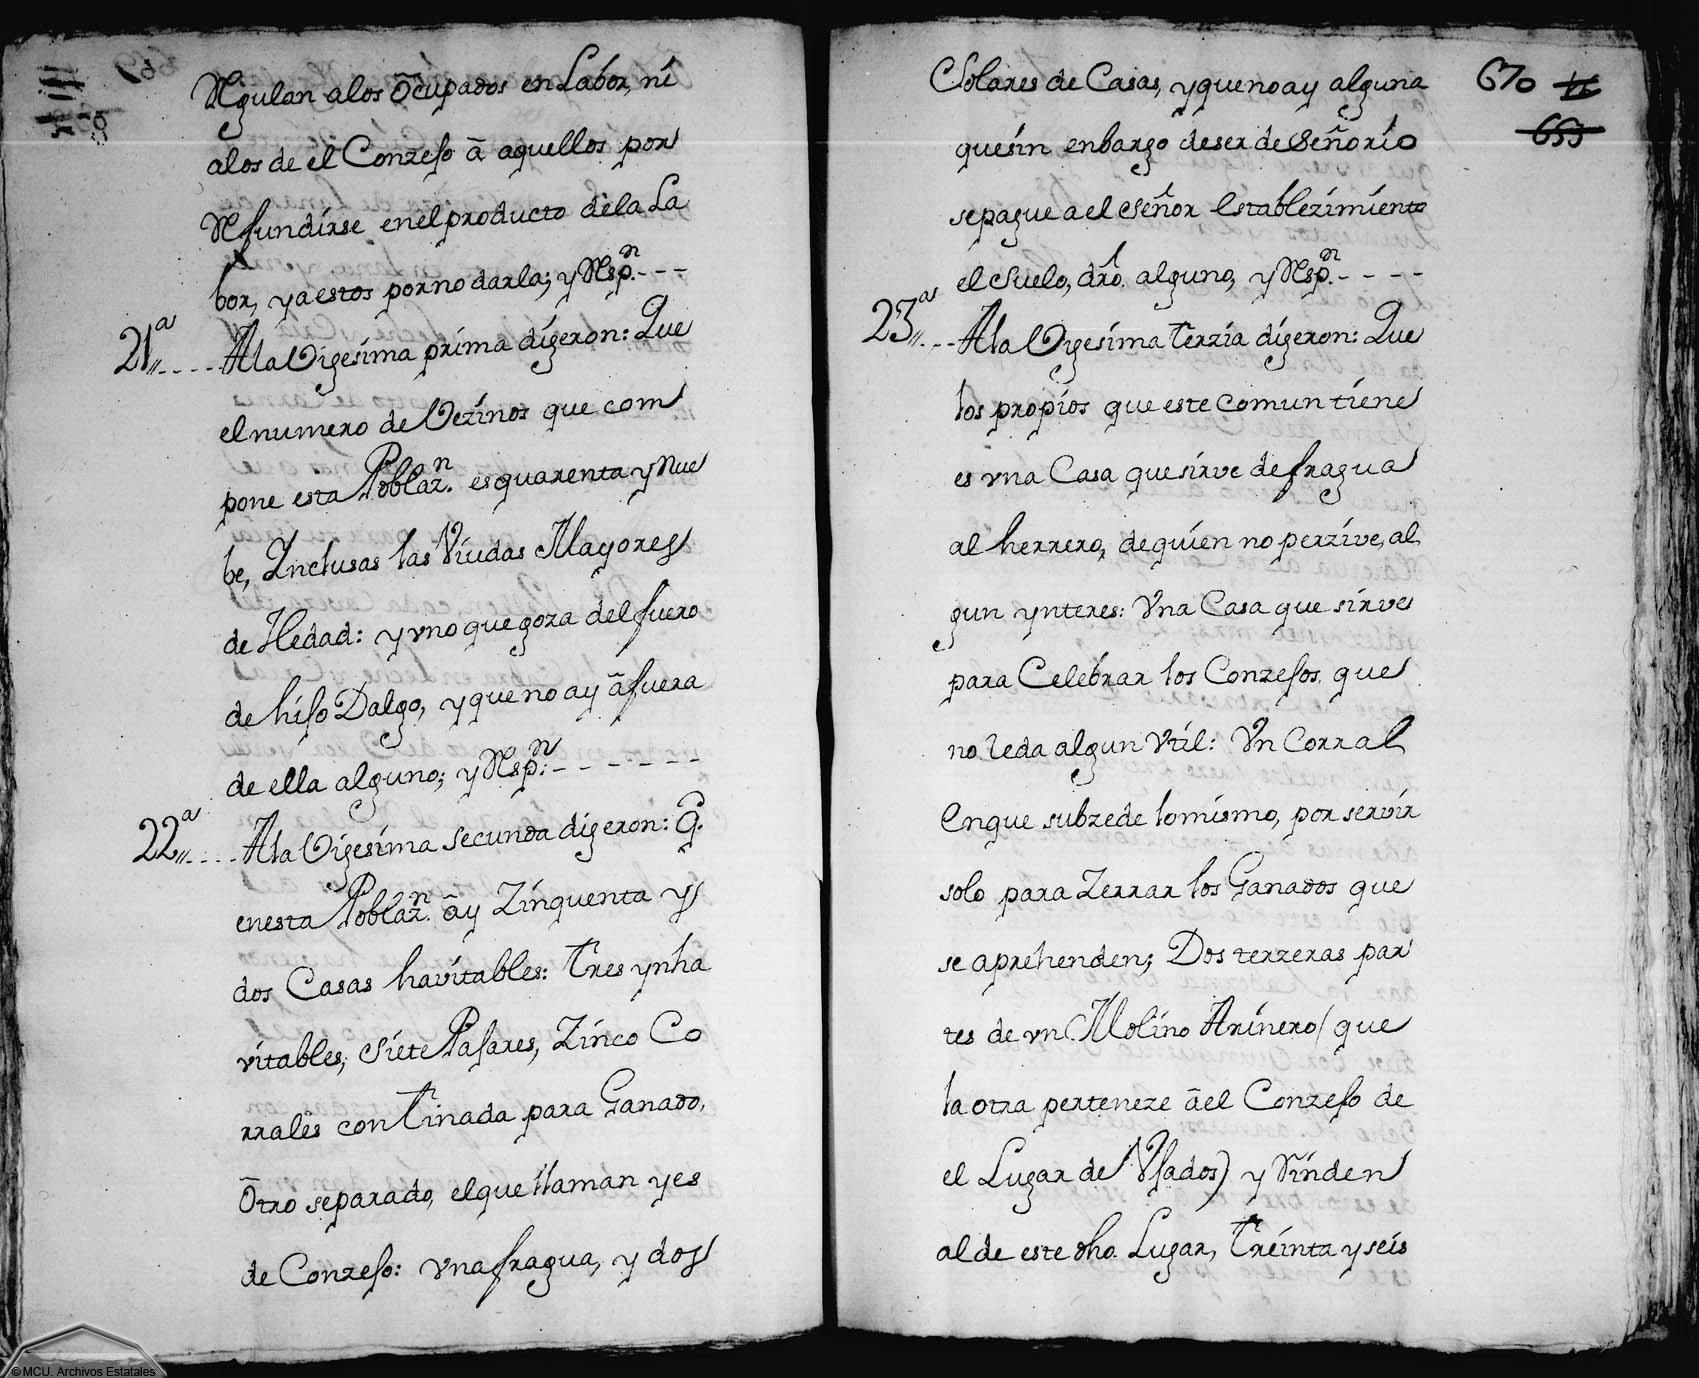 Rgulan alos Ocupados en Labor, ni
alos de el Conzejo â aquellos por
Rfundirse enel producto dela La
bor, y a estos por no darla; y Rsp.n - - -
21ª,,.... Ala Vigesima prima digeron: Que
el numero de Vezinos que com
pone esta Poblaz.n es quarenta y Nue
be, Inclusas las Viudas Mayores
de Hedad: y vno que goza del fuero
de hijo Dalgo, y que no ay â fuera
de ella alguno; y Rsp.n - - - - - -
22ª,,.... Ala Vigesima Secunda digeron: Q.
enesta Poblaz.n ây Zinquenta y
dos Casas havitables: Tres ynha
vitables; Siete Pajares, Zinco Co
rrales con Tinada para Ganado,
Otro separado, elque llaman y es
de Conzejo: Vna fragua, y dos
Solares de Casas, y que no ay alguna
que sin enbargo de ser de Señorío
se pague a el Señor Establezimiento
el Suelo, dro. alguno, y Rsp.n - - - -
23ª,,... Ala Vigesima Terzia digeron: Que
los propios que este Comun tiene
es vna Casa que sirve de fragua
al herrero, de quien no perzive, al
gun ynteres: Vna Casa que sirve
para Celebrar los Conzejos, que
no leda algun Vtil: Vn Corral
Enque subzede lo mismo, por servir
solo para Zerrar los Ganados que
se aprehenden; Dos terzeras par
tes de vn Molino Arinero (que
la otra perteneze âel Conzejo de
el Lugar de Vsados) y Rinden
al de este dho. Lugar, Treinta y seis
670
653
©MCU. Archivos Estatales